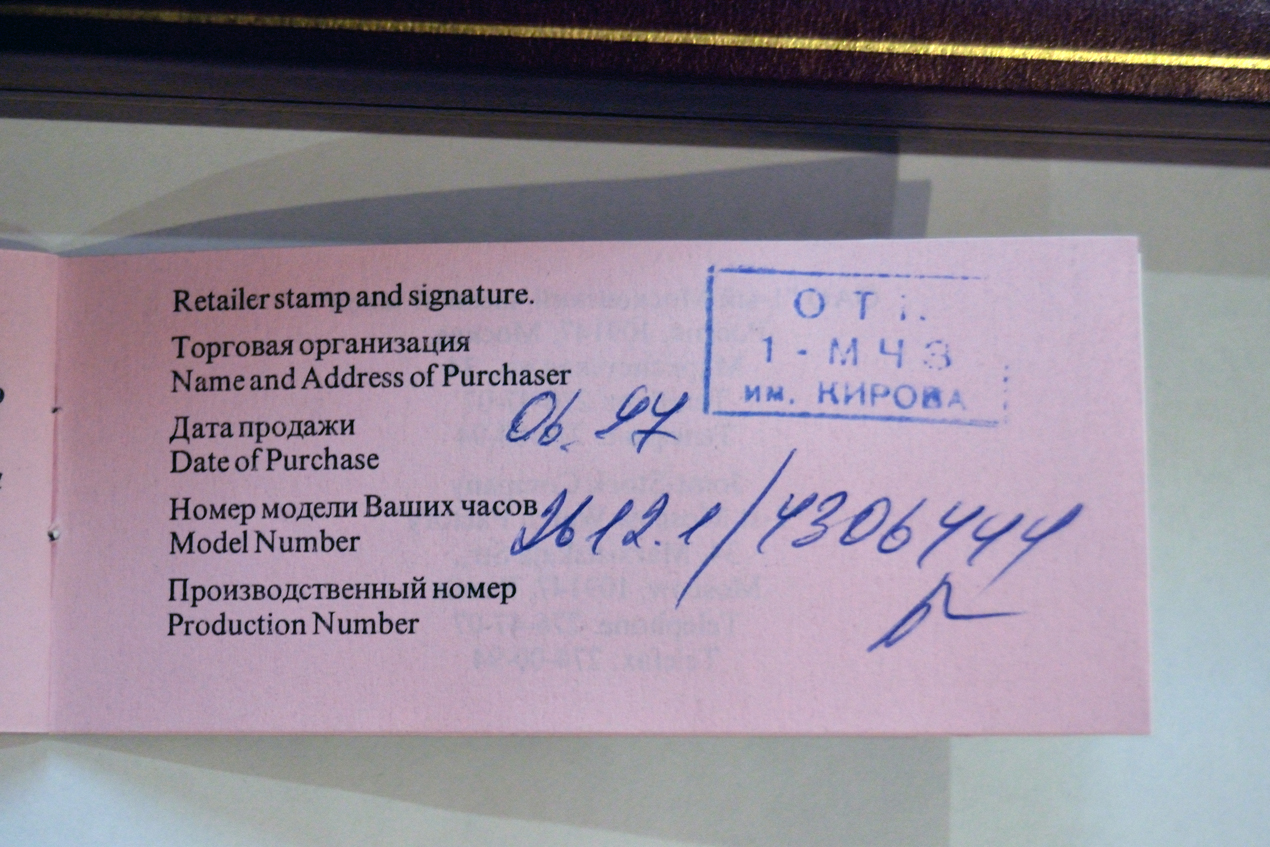 Retailer stamp and signature.
Торговая организация
Name and Address of Purchaser
Дата продажи
Date of Purchase
06. 97
Номер модели Ваших часов
Model Number
2612.1/4306444
Производственный номер
Production Number
О Т
1 - М Ч З
им. КИРОВА